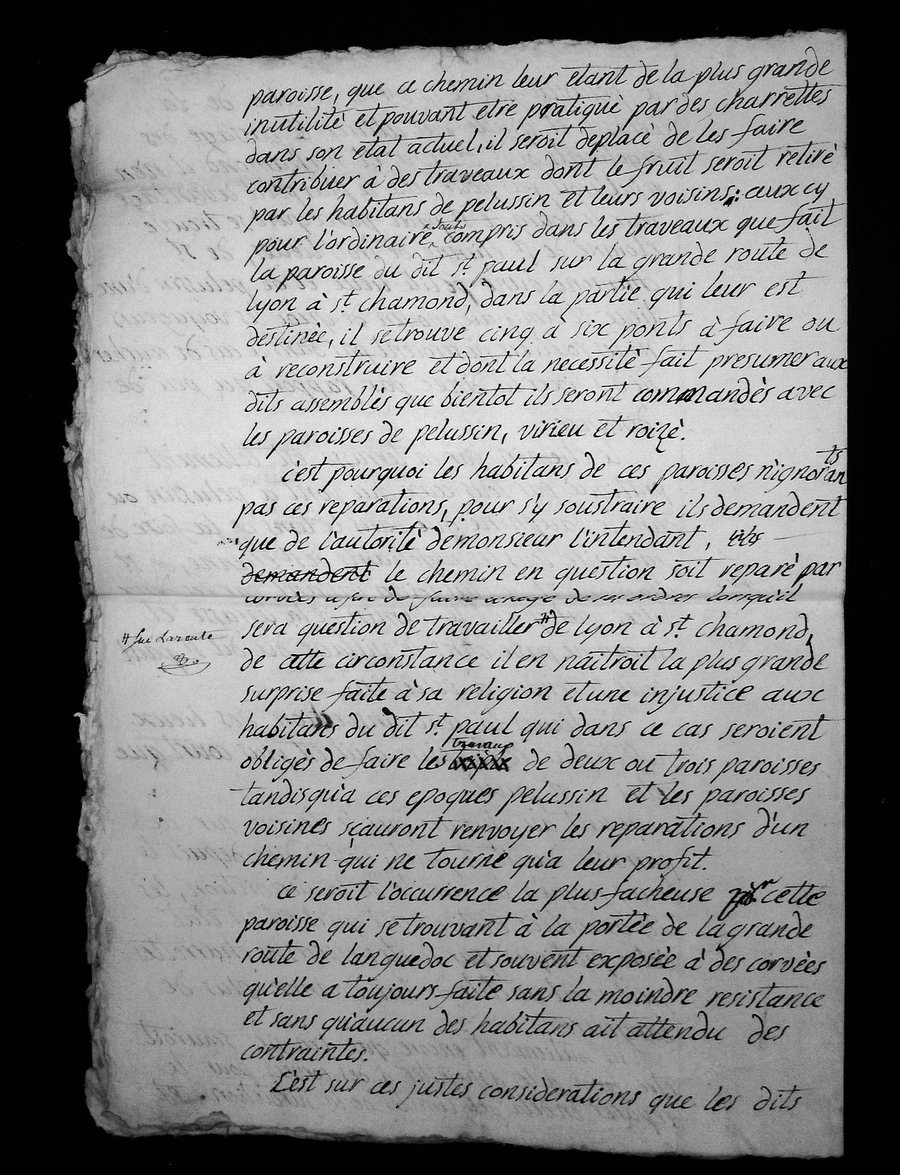 paroisse, que ce chemin leur etant de la plus grande
inutilité et pouvant etre pratiqué par des charrettes
dans son etat actuel, il seroit deplacé de les faire
contribuer à des traveaux dont le fruit seroit retiré
par les habitans de pelussin et leurs voisins; ceux cy
pour l'ordinaire compris dans les traveaux que fait
la paroisse du dit st. paul sur la grande route de
lyon à st. chamond, dans la partie qui leur est
destinée, il se trouve cinq à six ponts à faire ou
à reconstruire et dont la necessité fait presumer aux
dits assemblés que bientot ils seront commandés avec
les paroisses de pelussin, virieu et roizé.
c'est pourquoi les habitans de ces paroisses n'ignorants
pas ces reparations, pour s'y soustraire ils demandent
que de l'autorité de monsieur l'intendant,
demandent le chemin en question soit reparé par
corvées afin de faire usage de cet ordre lorsqu'il
sera question de travailler # de lyon à st. chamond,
# sur la route
de cette circonstance il en naîtroit la plus grande
surprise faite à sa religion et une injustice aux
habitans du dit st. paul qui dans ce cas seroient
obligés de faire les travaux de deux ou trois paroisses
tandis qu'a ces epoques pelussin et les paroisses
voisines sçauront renvoyer les reparations d'un
chemin qui ne tourne qu'a leur profit.
ce seroit l'occurrence la plus facheuse pour cette
paroisse qui se trouvant à la portée de la grande
route de languedoc et souvent exposée à des corvées
qu'elle a toujours faite sans la moindre resistance
et sans qu'aucun des habitans ait attendu des
contraintes.
C'est sur ces justes considerations que les dits